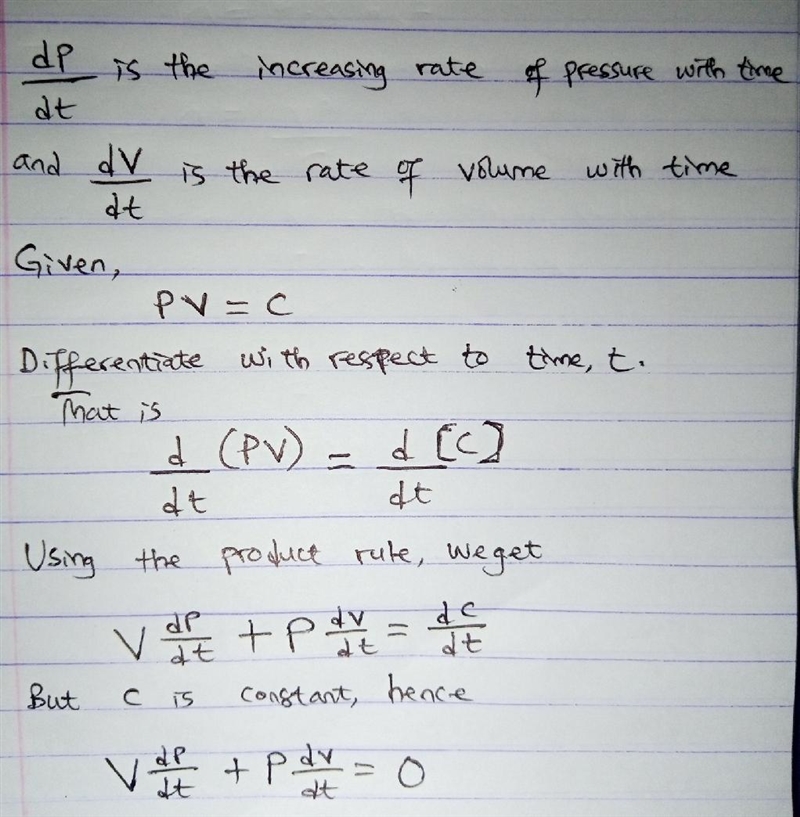 dP/dt is the increasing rate of pressure with time
and dV/dt is the rate of volume with time
Given,
PV = C
Differentiate with respect to time, t.
That is
d/dt (PV) = d/dt [C]
Using the product rule, we get
V dP/dt + P dV/dt = dC/dt
But C is constant, hence
V dP/dt + P dV/dt = 0